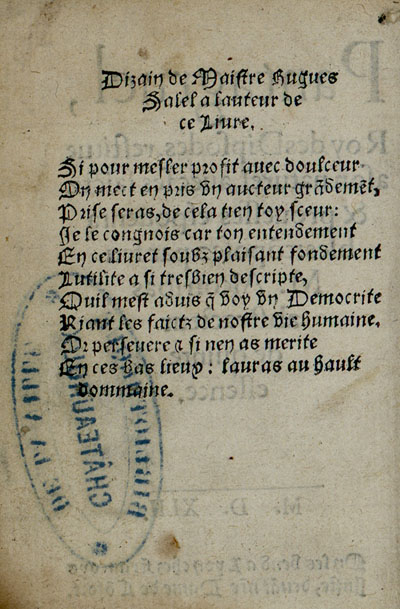 Dizain de Maistre Hugues
Salel a lauteur de
ce Liure.
Si pour mesler profit auec doulceur
On mect en pris vn aucteur grãdemēt,
Prise seras, de cela tien toy sceur:
Je le congnois car ton entendement
En ce liuret soubz plaisant fondement
Lutilite a si tresbien descripte,
Quil mest aduis q̃ voy vn Democrite
Riant les faictz de nostre vie humaine.
Or perseuere & si nen as merite
En ces bas lieux: lauras au hault
dommaine.
DE LA VILLE
CHÂTEAUROUX
BIBLIO